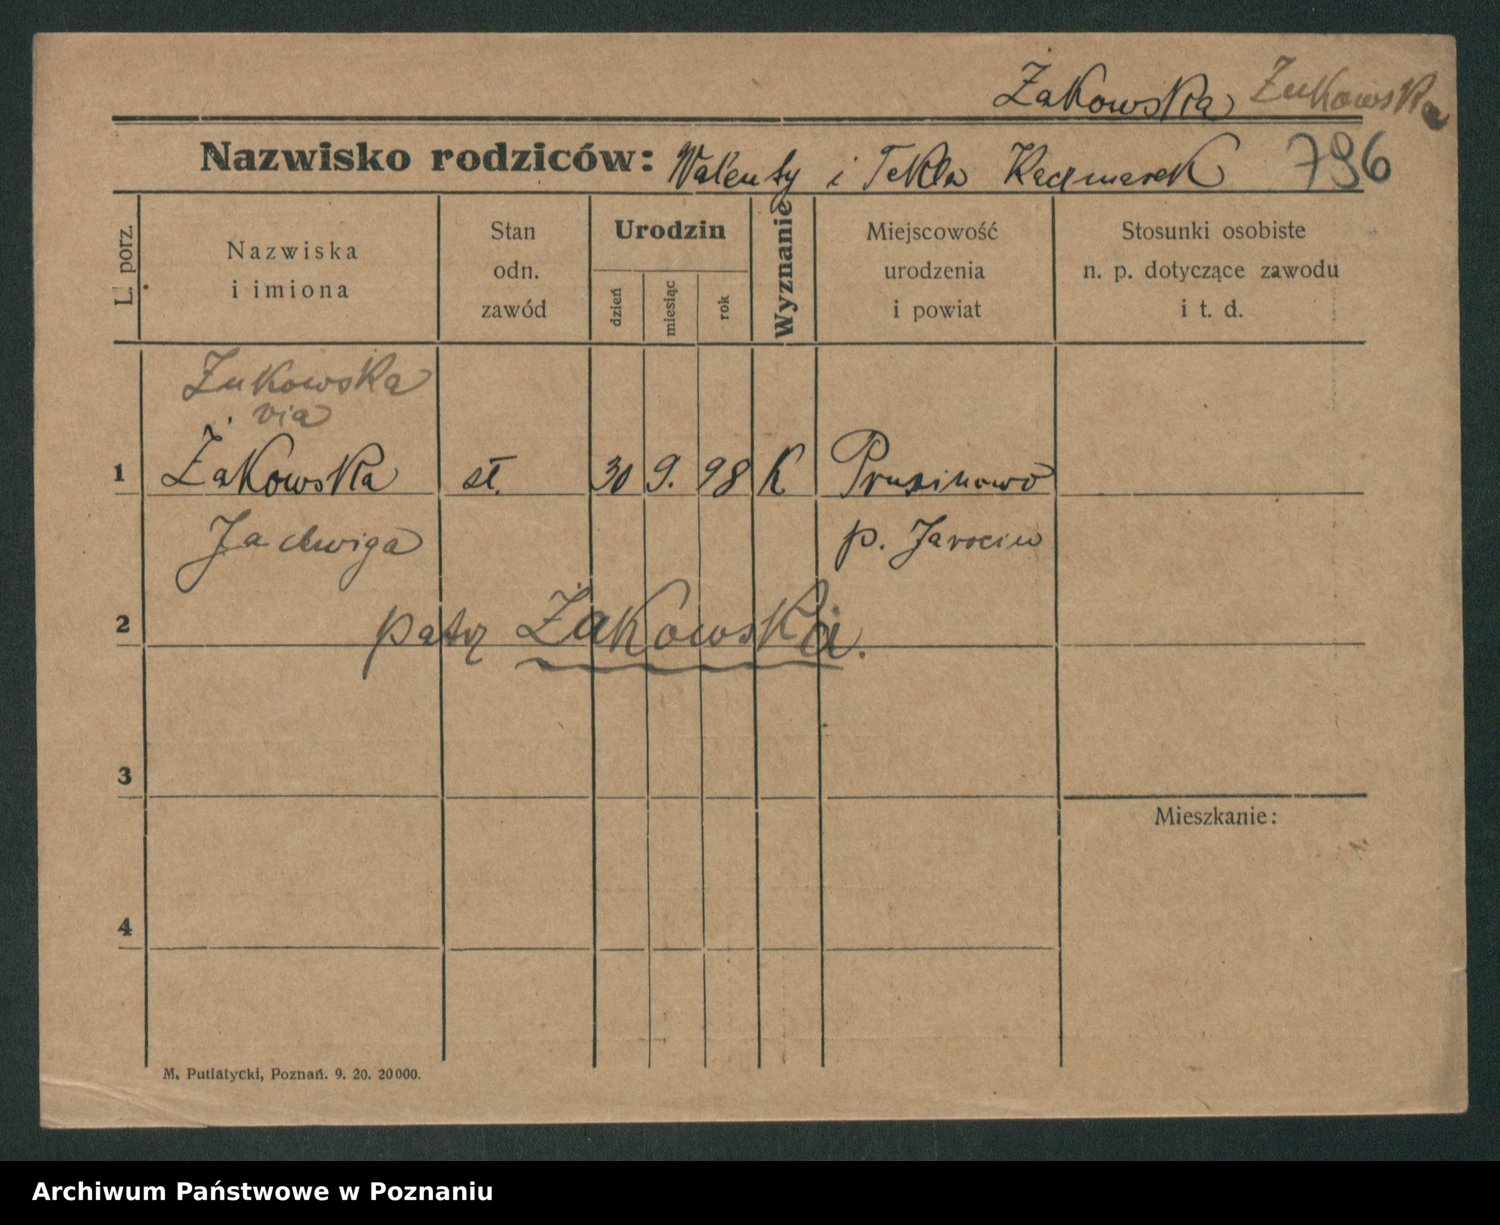 Żakowska Żukowska
Nazwisko rodziców: Walenty i Tekla Kaczmarek 796
L. porz.
Nazwiska
i imiona
Stan
odn.
zawód
Urodzin
dzień
miesiąc
rok
Wyznanie
Miejscowość
urodzenia
i powiat
Stosunki osobiste
n. p. dotyczące zawodu
i t. d.
Żukowska
via
1 Żakowska sł. 30 9. 98 K Prusinowo
Jadwiga p. Jarocin
2 patrz Żakowska.
3
Mieszkanie:
4
M. Putiatycki, Poznań. 9. 20. 20000.
Archiwum Państwowe w Poznaniu